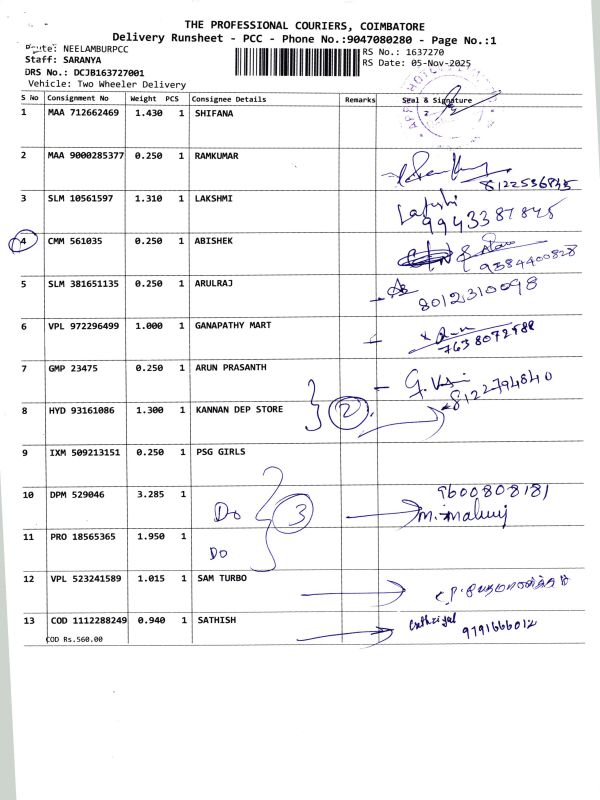 THE PROFESSIONAL COURIERS, COIMBATORE
Delivery Runsheet - PCC - Phone No.:9047080280 - Page No.:1
Route: NEELAMBURPCC
RS No.: 1637270
Staff: SARANYA
RS Date: 05-Nov-2025
DRS No.: DCJB163727001
Vehicle: Two Wheeler Delivery
S No Consignment No Weight PCS Consignee Details Remarks Seal & Signature
1 MAA 712662469 1.430 1 SHIFANA
2 MAA 9000285377 0.250 1 RAMKUMAR
8122536845
3 SLM 10561597 1.310 1 LAKSHMI
9943387845
4 CMM 561035 0.250 1 ABISHEK
9384400828
5 SLM 381651135 0.250 1 ARULRAJ
8012310098
6 VPL 972296499 1.000 1 GANAPATHY MART
7638072988
7 GMP 23475 0.250 1 ARUN PRASANTH
8122794840
8 HYD 93161086 1.300 1 KANNAN DEP STORE 2
9 IXM 509213151 0.250 1 PSG GIRLS
10 DPM 529046 3.285 1 Do 3 9600808181
11 PRO 18565365 1.950 1 Do
12 VPL 523241589 1.015 1 SAM TURBO
13 COD 1112288249 0.940 1 SATHISH 9791666012
COD Rs.560.00